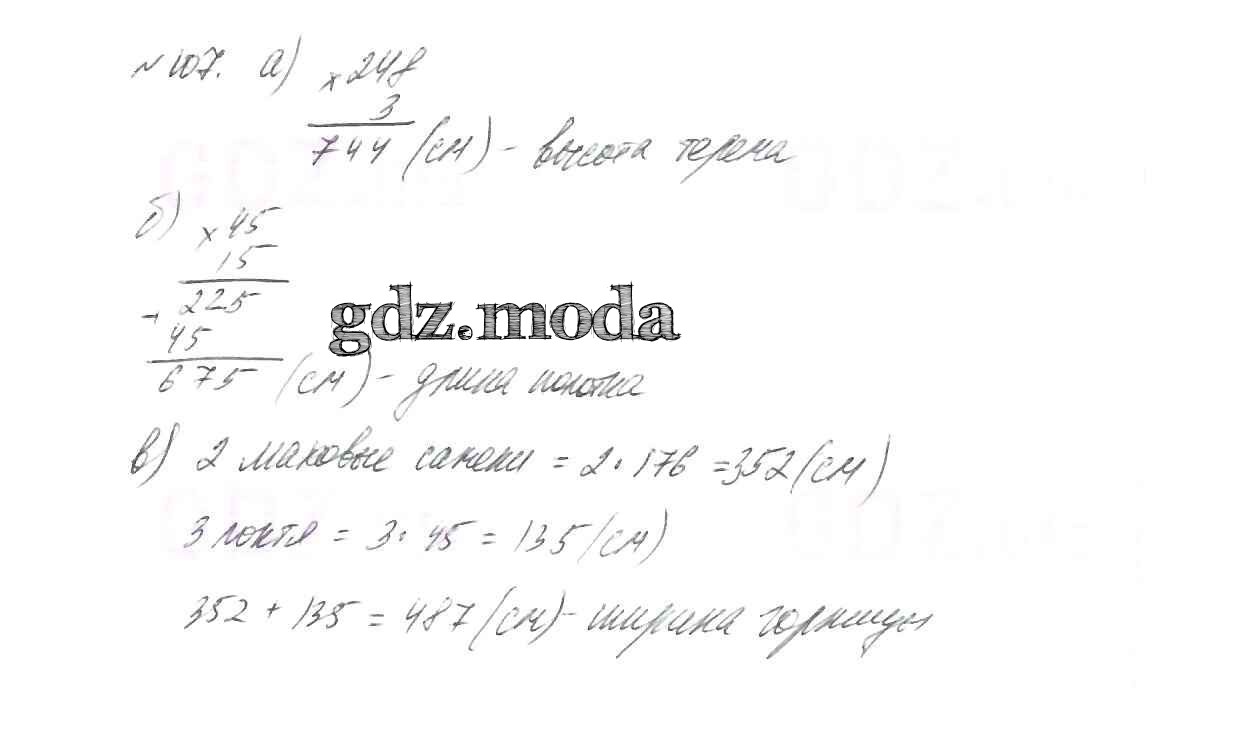 № 107. а) × 248
3
744 (см) - высота терема
б) × 45
15
+ 225
45
675 (см) - длина полотна
gdz.moda
в) 2 маховые сажени = 2 · 176 = 352 (см)
3 локтя = 3 · 45 = 135 (см)
352 + 135 = 487 (см) - ширина горницы